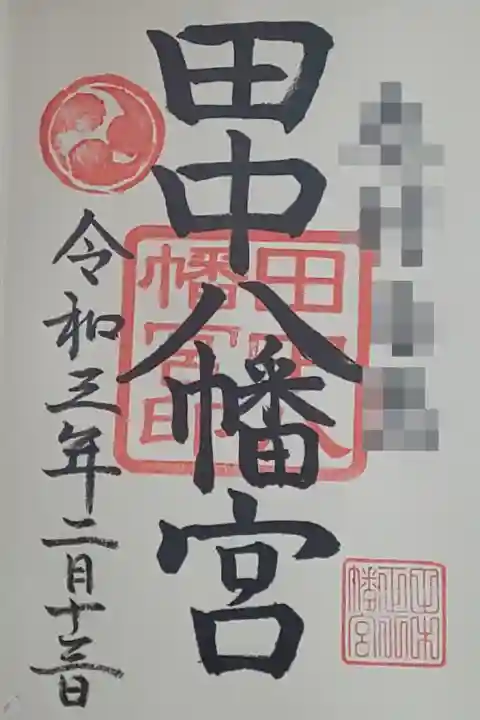 田中八幡宮
田中八
幡宮印
令和三年二月十三日
正八
幡宮